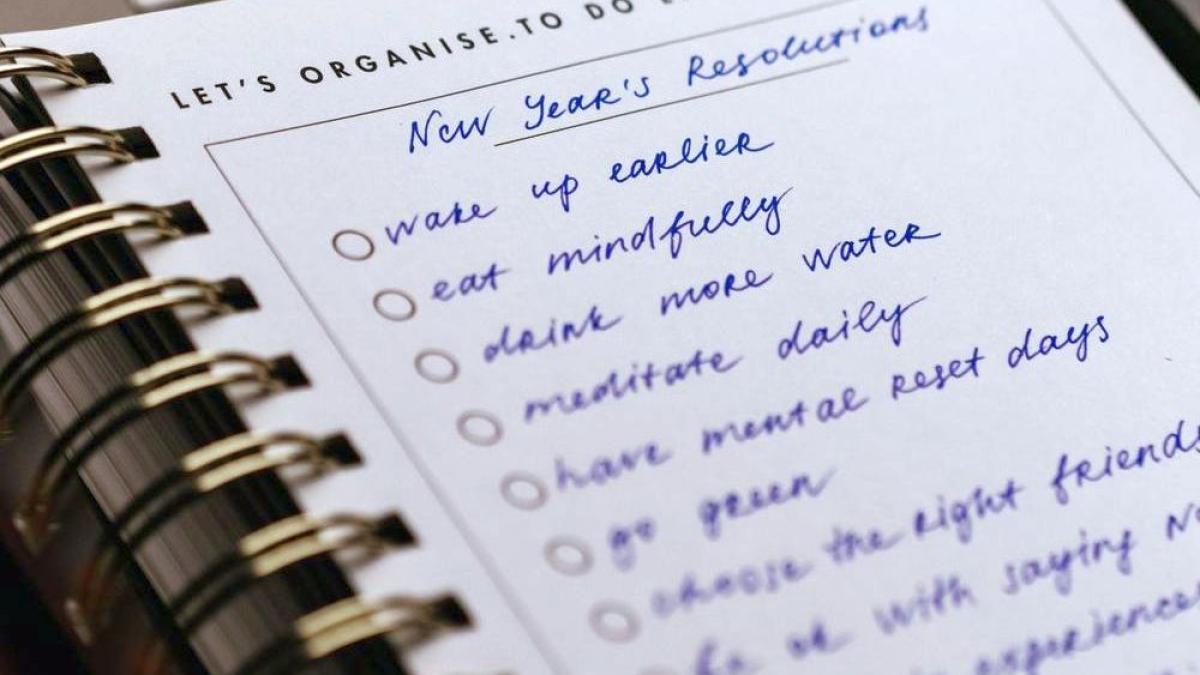 LET'S ORGANISE.TO DO
New Year's Resolutions
wake up earlier
eat mindfully
drink more water
meditate daily
have mental reset days
go green
choose the right friends
be ok with saying
experience